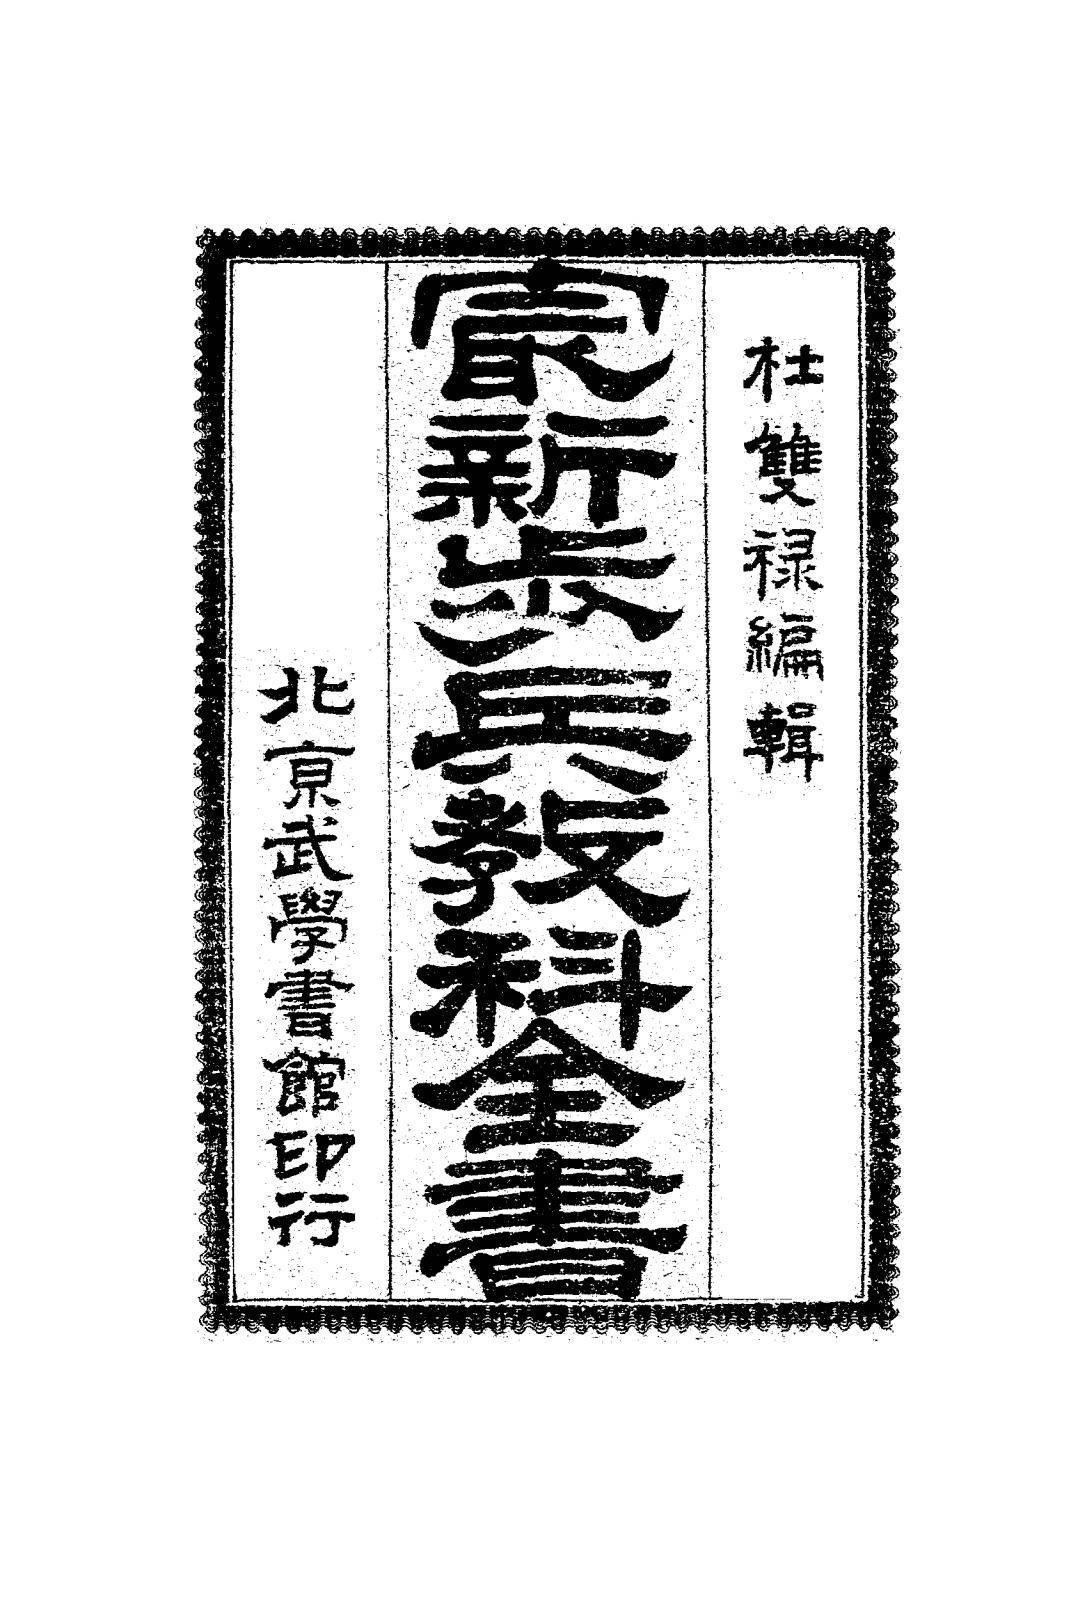 杜雙禄編輯
冣新步兵教科全書
北京武學書館印行